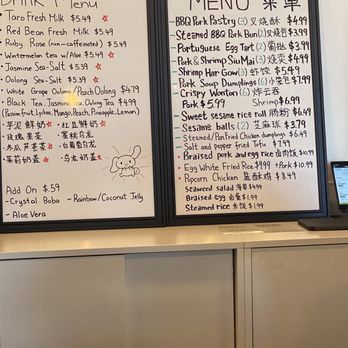 Drink Menu
Taro Fresh Milk $5.49
Red Bean Fresh Milk $5.49
Ruby Rose (non-caffeinated) $5.49
Wintermelon tea w/Aloe $5.39
Jasmine Sea-Salt $5.39
Oolong Sea-Salt $5.39
White Grape Oolong/Peach Oolong $4.79
Black Tea, Jasmine Tea, Oolong Tea $4.99
(Passionfruit, Lychee, Mango, Peach, Pineapple, Lemon)
芋泥鲜奶 红豆鲜奶
玫瑰
Add On $.59
- Crystal Boba - Rainbow/Coconut Jelly
- Aloe Vera
MENU 菜單
BBQ Pork Pastry (3) 叉燒酥 $4.99
Steamed BBQ Pork Bun (2) 叉燒包 $3.99
Portuguese Egg Tart (2) 葡撻 $3.99
Pork & Shrimp Siu Mai (3) 燒賣 $4.99
Shrimp Har Gow (3) 虾饺 $5.49
Pork Soup Dumplings (6) 小笼包 $7.99
Crispy Wonton (6) 炸云吞
Pork $5.99 Shrimp $6.99
Sweet sesame rice roll 肠粉 $6.99
Sesame balls (2) 芝麻球 $3.79
Steamed/Pan Fried Chicken dumplings $6.49
Salt and pepper fried Tofu $7.99
Braised pork and egg rice 卤肉饭 $10.99
Egg White Fried Rice $9.99 +Pork $10.99
Popcorn Chicken 盐酥鸡 $8.49
Seaweed salad 海草 $4.99
Braised egg 卤蛋 $1.99
Steamed rice 米饭 $1.99